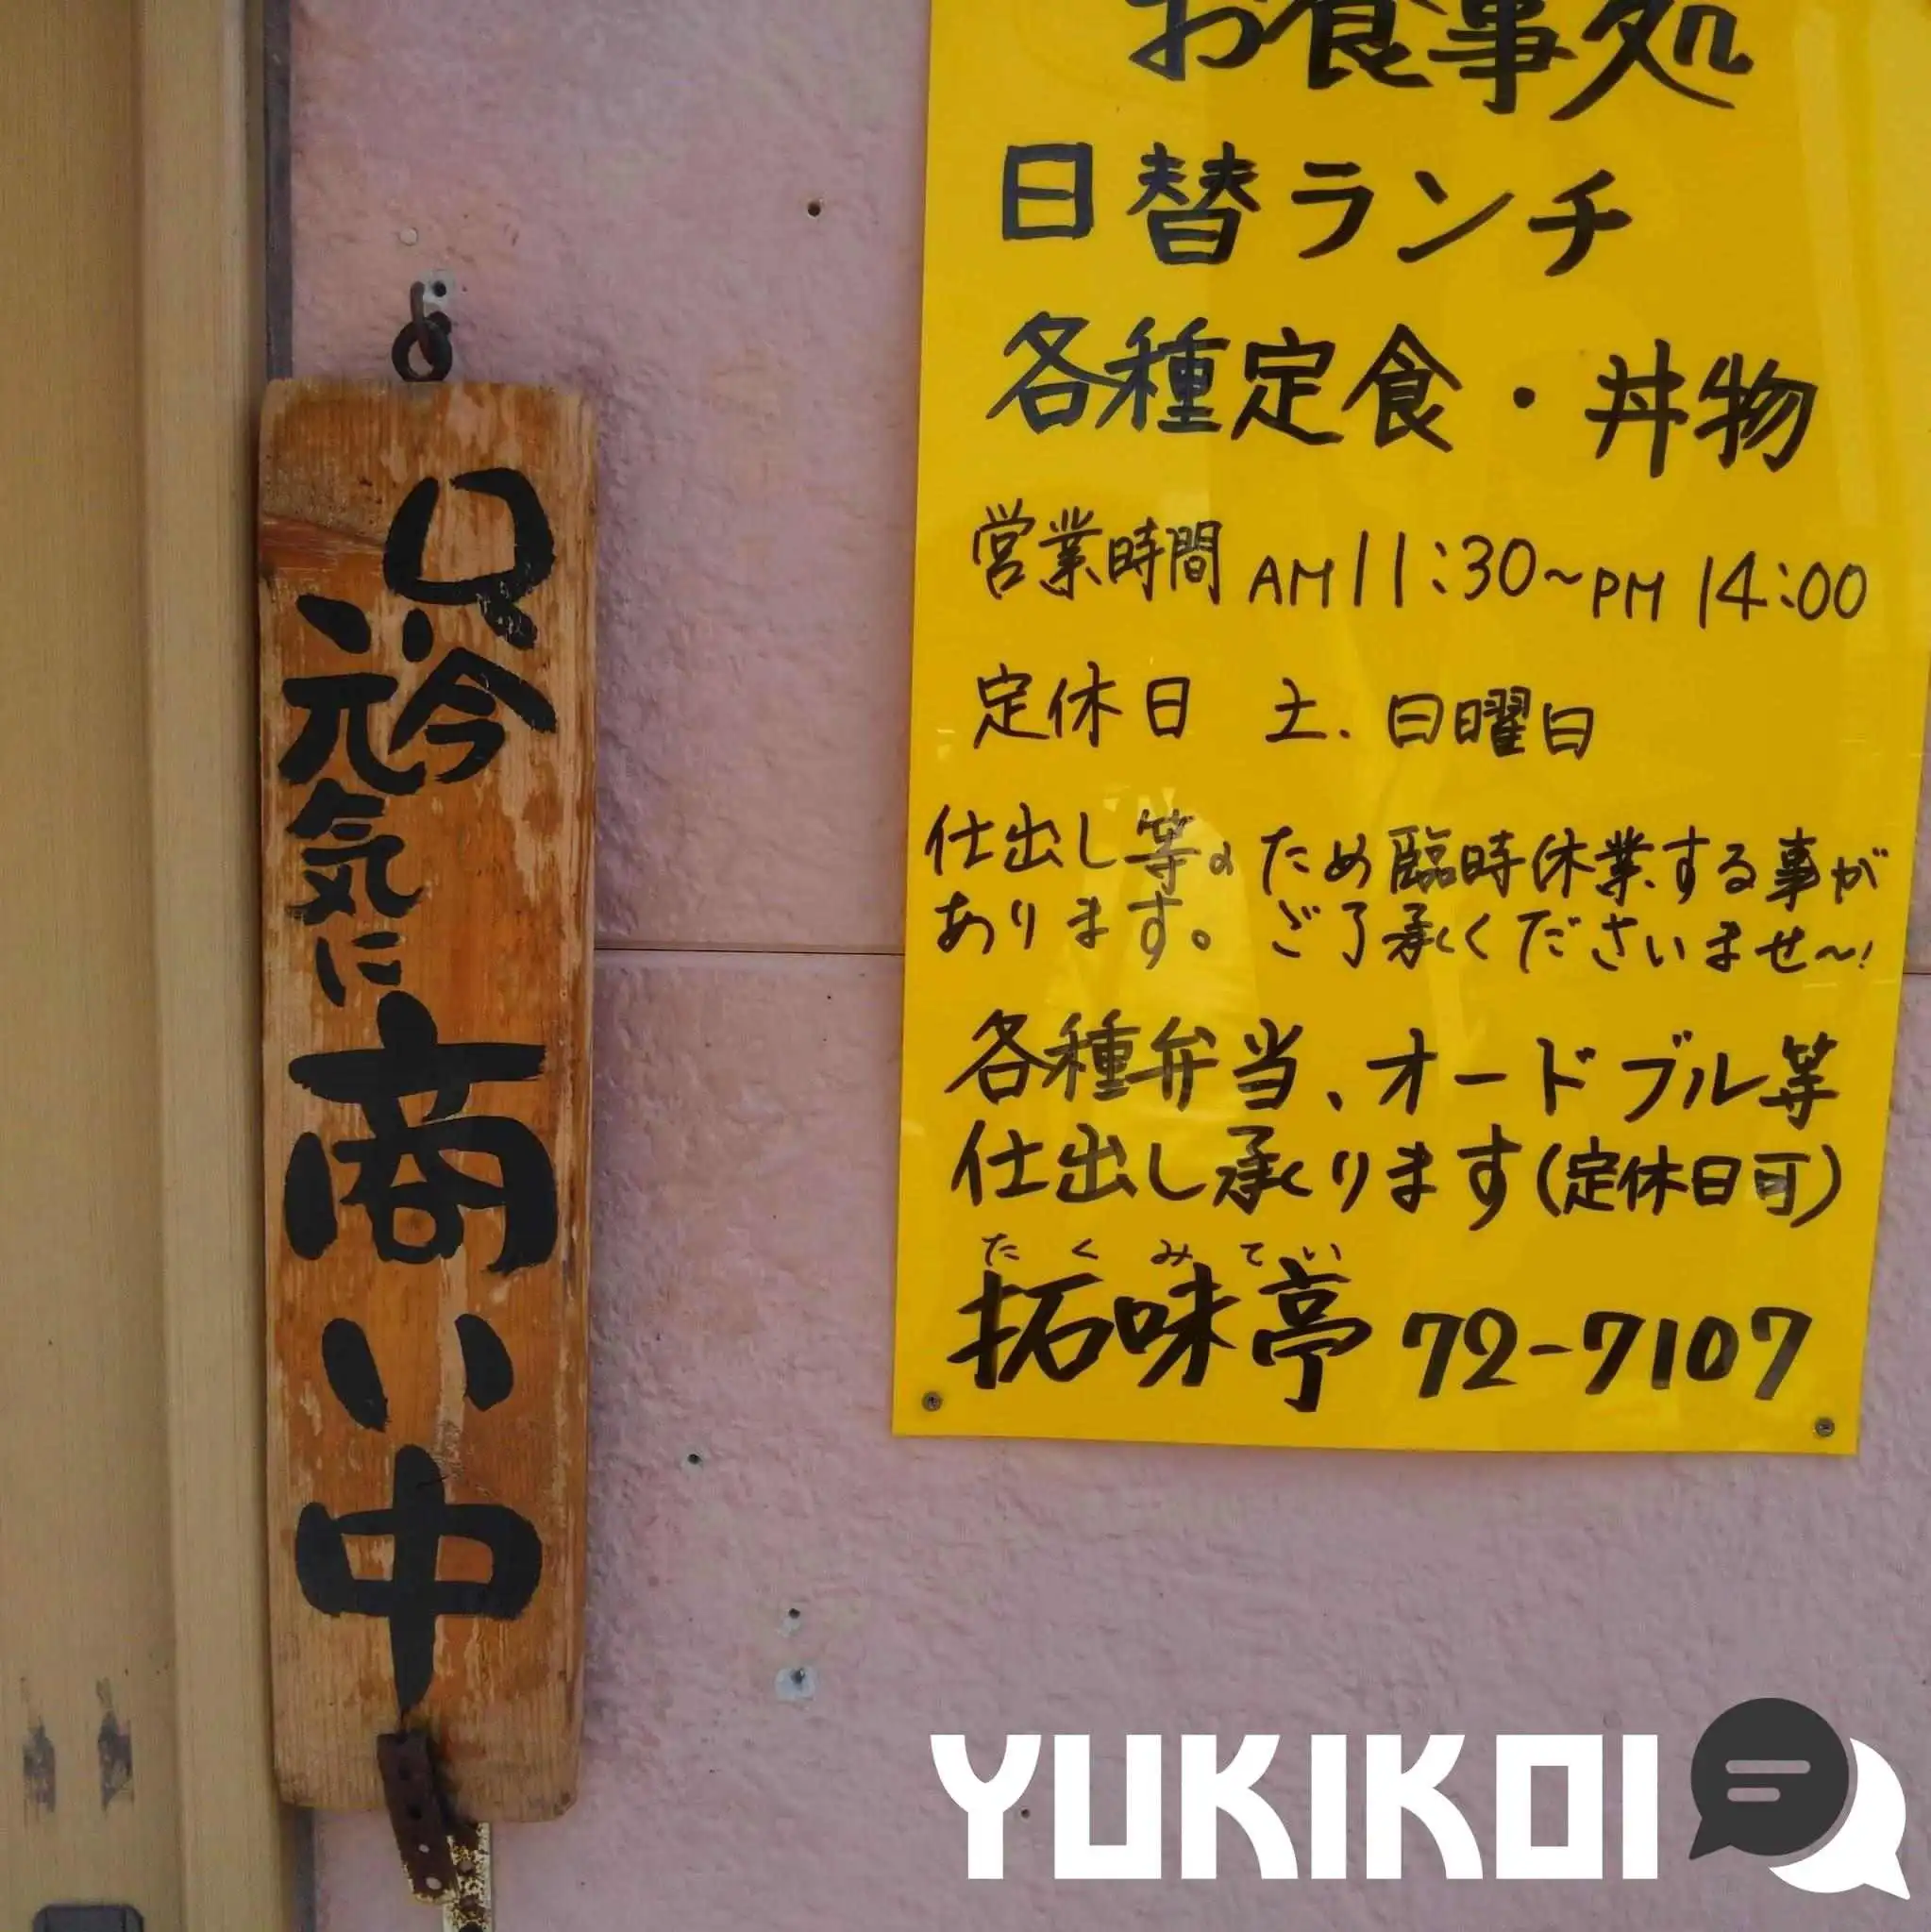 只今
元気に
商い中
お食事処
日替ランチ
各種定食・丼物
営業時間 AM 11:30~PM 14:00
定休日 土.日曜日
仕出し等のため臨時休業する事が
あります。ご了承くださいませ〜!
各種弁当、オードブル等
仕出し承くります(定休日可)
たくみてい
拓味亭 72-7107
YUKIKOI